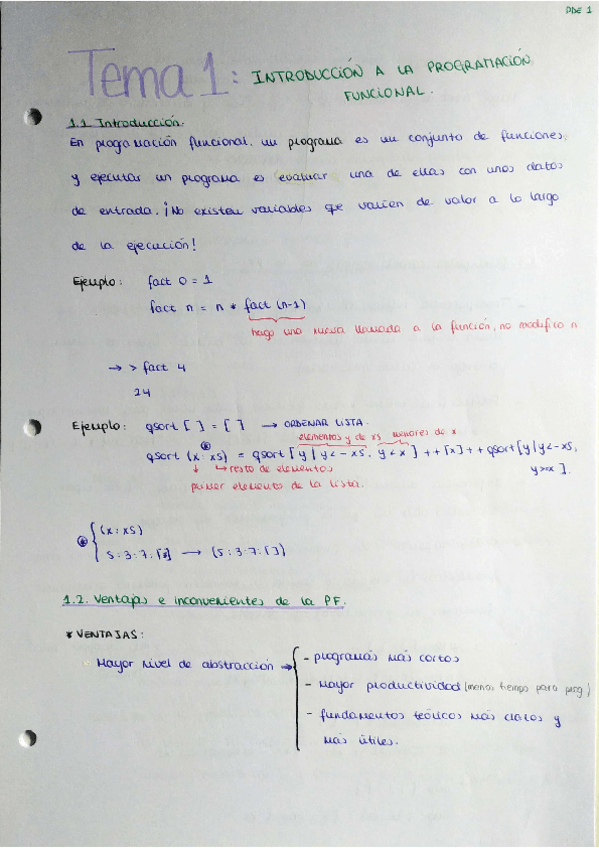 PDE 1
Tema 1: INTRODUCCIÓN A LA PROGRAMACIÓN
FUNCIONAL.
1.1 Introducción.
En programación funcional, un programa es un conjunto de funciones
y ejecutar un programa es evaluar una de ellas con unos datos
de entrada. ¡No existen variables que varíen de valor a lo largo
de la ejecución!
Ejemplo: fact 0 = 1
fact n = n * fact (n-1)
hago una nueva llamada a la función, no modifico n
→ > fact 4
24
Ejemplo: qsort [ ] = [ ] → ORDENAR LISTA.
elementos y de xs menores de x
qsort (x : xs) = qsort [y | y <- xs, y < x] ++ [x] ++ qsort [y | y <- xs,
↳ resto de elementos
y >= x ].
primer elemento de la lista.
(x : xs)
5 : 3 : 7 : → (5 : 3 : 7 : [ ])
1.2. Ventajas e inconvenientes de la PF.
* VENTAJAS:
Mayor nivel de abstracción → - programas más cortos
- mayor productividad (menos tiempo para prog.)
- fundamentos teóricos más claros y
más útiles.